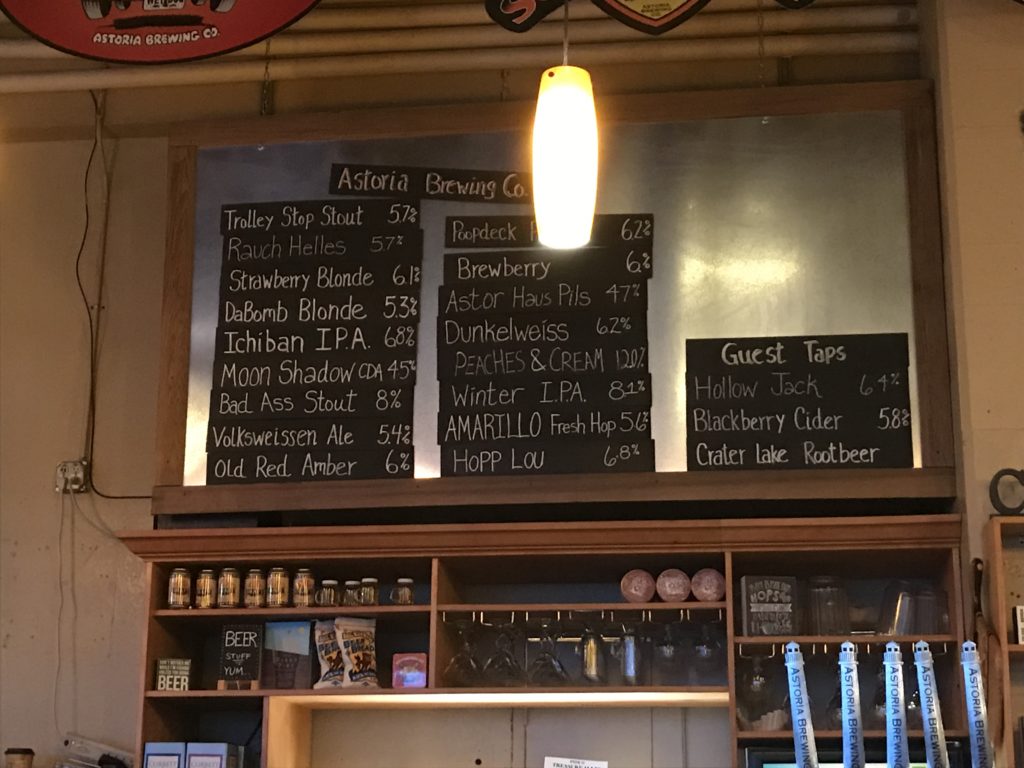 ASTORIA BREWING CO.
Astoria Brewing Co.
Trolley Stop Stout 5.7%
Rauch Helles 5.7%
Strawberry Blonde 6.1%
DaBomb Blonde 5.3%
Ichiban I.P.A. 6.8%
Moon Shadow CDA 4.5%
Bad Ass Stout 8%
Volksweissen Ale 5.4%
Old Red Amber 6%
Poopdeck 6.2%
Brewberry 6%
Astor Haus Pils 4.7%
Dunkelweiss 6.2%
PEACHES & CREAM
Winter I.P.A. 8.1%
AMARILLO Fresh Hop 5.6%
HOPP LOU 6.8%
Guest Taps
Hollow Jack 6.4%
Blackberry Cider 5.8%
Crater Lake Rootbeer
BEER
STUFF
YUM...
BEER
HOPS
ASTORIA BREWING
ASTORIA BREWING
ASTORIA BREWING
ASTORIA BREWING
ASTORIA BREWING